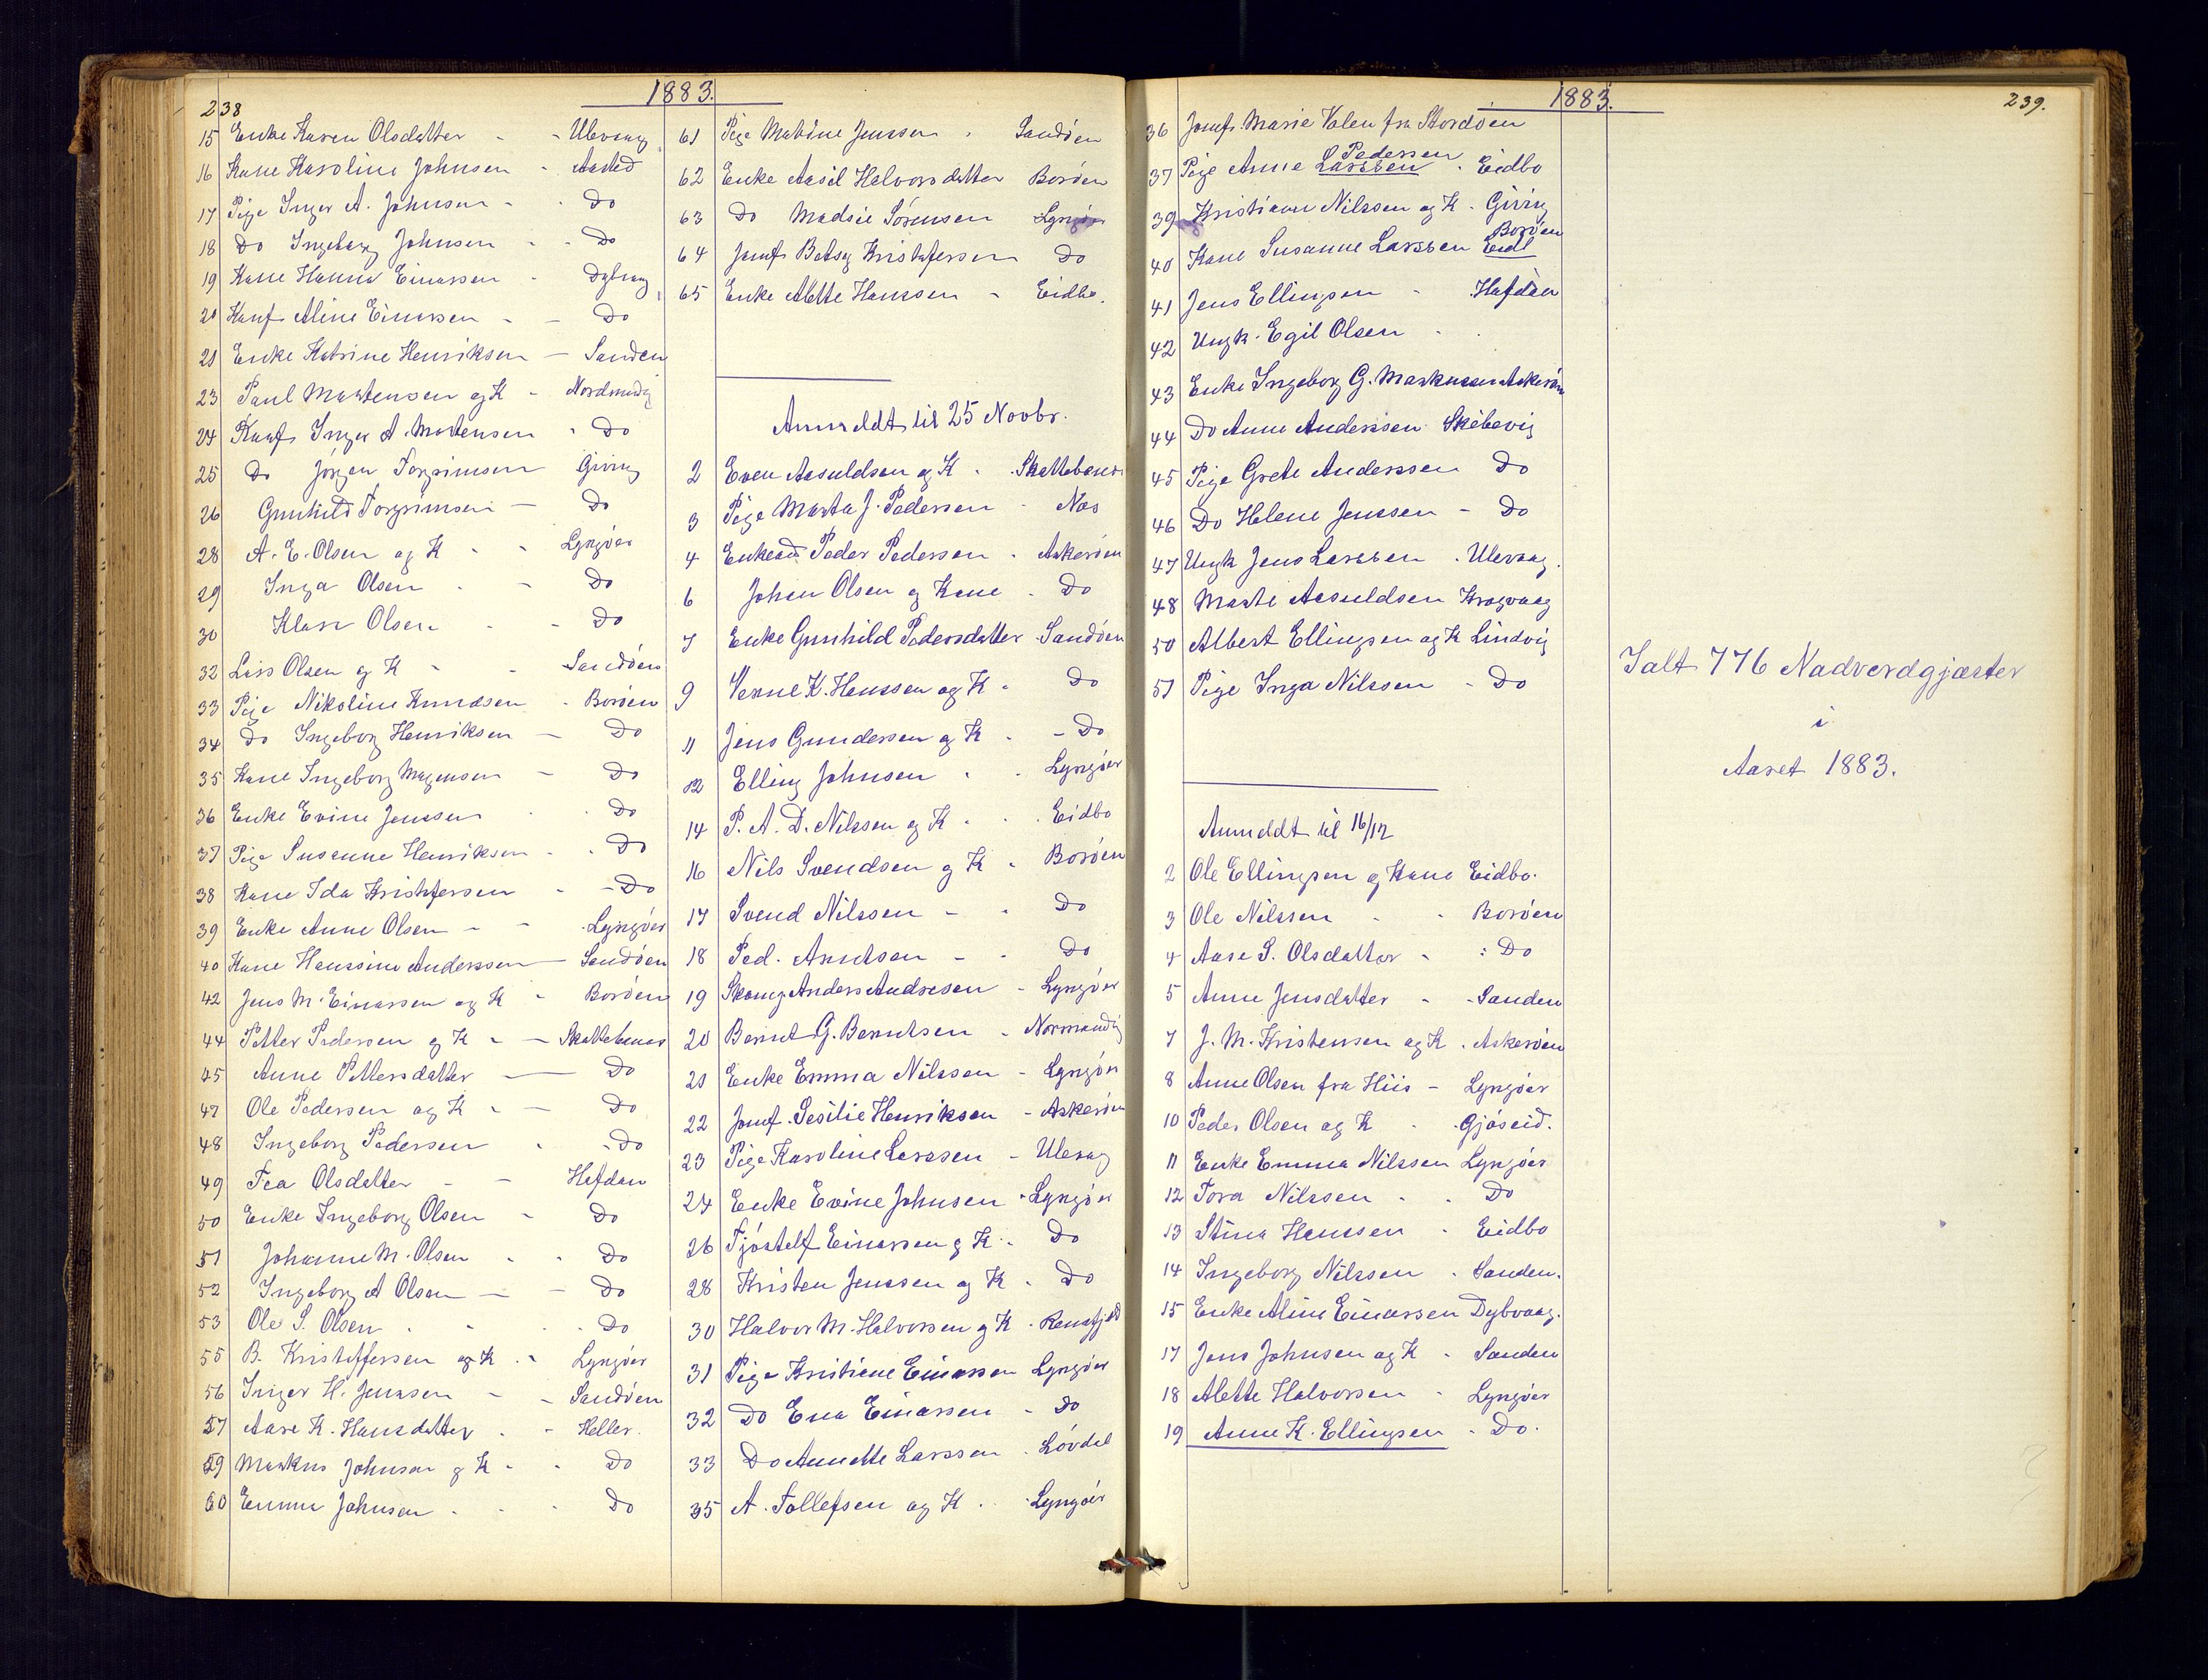 238
1883.
15 Enke Karen Olsdatter - - Ulevaag
16 Kane Karoline Johnsen - Aasted
17 Pige Inger A. Johnsen - - Do
18 Do Ingeborg Johnsen - - Do
19 Kane Hanna Einarsen - Dybvaag
20 Aline Einersen - - Do
21 Enke Katrine Henriksen - Sanden
23 Paul Mortensen og K -
24 Inger A. Mortensen - Do
25 Do Jörgen Torgrimsen Giving
26 Gunhild Torgrimsen - Do
28 A. E. Olsen og K - - Lyngöer
29 Inga Olsen - - Do
30 Klara Olsen - - Do
32 Lars Olsen og K - - Sandöen
33 Pige Nikoline Knudsen - Boröen
34 Do Ingeborg Henriksen - Do
35 Kane Ingeborg Magensen - Do
36 Enke Evine Jenssen - - Do
37 Pige Susanne Henriksen - - Do
38 Kane Ida Kristofersen - - Do
39 Enke Anne Olsen - - Lyngöer
40 Kane Hanssine Anderssen - Sandöen
42 Jens M. Einarsen og K - Boröen
44 Petter Pedersen og K - - Skattebenes
45 Anne Pettersdatter - Do
47 Ole Pedersen og K - - Do
48 Ingeborg Pedersen - - Do
49 Tea Olsdatter - - Hafdan
50 Enke Ingeborg Olsen - Do
51 Johanne M. Olsen - - Do
52 Ingeborg A Olsen - - Do
53 Ole S. Olsen - - - Do
55 B. Kristoffersen og K - - Lyngöer
56 Inger H. Jenssen - - Sandöen
57 Aase K. Hansdatter - - Heller.
59 Markus Johnsen og K - - Do
60 Emma Johnsen - - - Do
61 Pige Mabine Jenssen - Sandöen
62 Enke Aasil Halvorsdatter Boröen
63 Do Madsie Sörensen Lyngöer
64 Jomf. Betsy Kristofersen Do
65 Enke Alette Hanssen - Eidbo.
Anmeldt til 25 Novbr.
2 Even Aasuldsen og K - Skattebenes
3 Pige Marta J. Pedersen - Næs
4 Enkem Peder Pedersen - Askeröen
6 Johan Olsen og Kane - Do
7 Enke Gunhild Pedersdatter Sandöen
9 K. Hanssen og K - Do
11 Jens Gundersen og K - - Do
12 Elling Johnsen - - Lyngöer
14 P. A. D. Nilssen og K - - Eidbo
16 Nils Svendsen og K - Boröen
17 Svend Nilssen - - Do
18 Ped. Arntsen - - Do
19 Anders Andresen - Lyngöer
20 Bernt G. Berntsen - Normandvig
21 Enke Emma Nilssen - Lyngöer
22 Jomf. Sesilie Henriksen - Askeröen
23 Pige Karoline Larssen - Ulevag
24 Enke Evine Johnsen - Lyngöer
26 Tjöstelf Einarsen og K - Do
28 Kristen Jenssen og K - Do
30 Halvor M. Halvorsen og K - Rensfjeld
31 Pige Kristiane Einarsen Lyngöer
32 Do Ena Einarsen - Do
33 Do Annette Larssen - Lövdal
35 A. Tollefsen og K - - Lyngöer
1883.
239.
36 Jomfr. Marie Valen fra Stordöen
Pedersen
37 Pige Anne Larssen - Eidbo
39 Kristiann Nilssen og K - Giving
Boröen
40 Kane Susanne Larssen Eidb
41 Jens Ellingsen - Hafdan
42 Ungk. Egil Olsen - -
43 Enke Ingeborg G. Markussen Askeröen
44 Do Anne Anderssen Skibevig
45 Pige Grete Anderssen Do
46 Do Helene Jenssen - Do
47 Ungk Jens Larssen - Ulevaag.
48 Marte Aasuldsen Kragvaag
50 Albert Ellingsen og K Lindvig
51 Pige Inga Nilssen - Do
Anmeldt til 16/12
2 Ole Ellingsen og Kane Eidbo.
3 Ole Nilssen - - Boröen
4 Aase S. Olsdatter - - Do
5 Anne Jensdatter - - Sanden
7 J. M. Kristensen og K - Askeröen
8 Anne Olsen fra Hiis - Lyngöer
10 Peder Olsen og K - - Gjöseid.
11 Enke Emma Nilssen Lyngöer
12 Tora Nilssen - - Do
13 Stina Hanssen - Eidbo
14 Ingeborg Nilssen - Sanden.
15 Enke Aline Einarssen Dybvaag.
17 Jens Johnsen og K - Sanden
18 Alette Halvorsen - Lyngöer
19 Anne K. Ellingsen - Do.
Ialt 776 Nadverdgjæster
i
Aaret 1883.